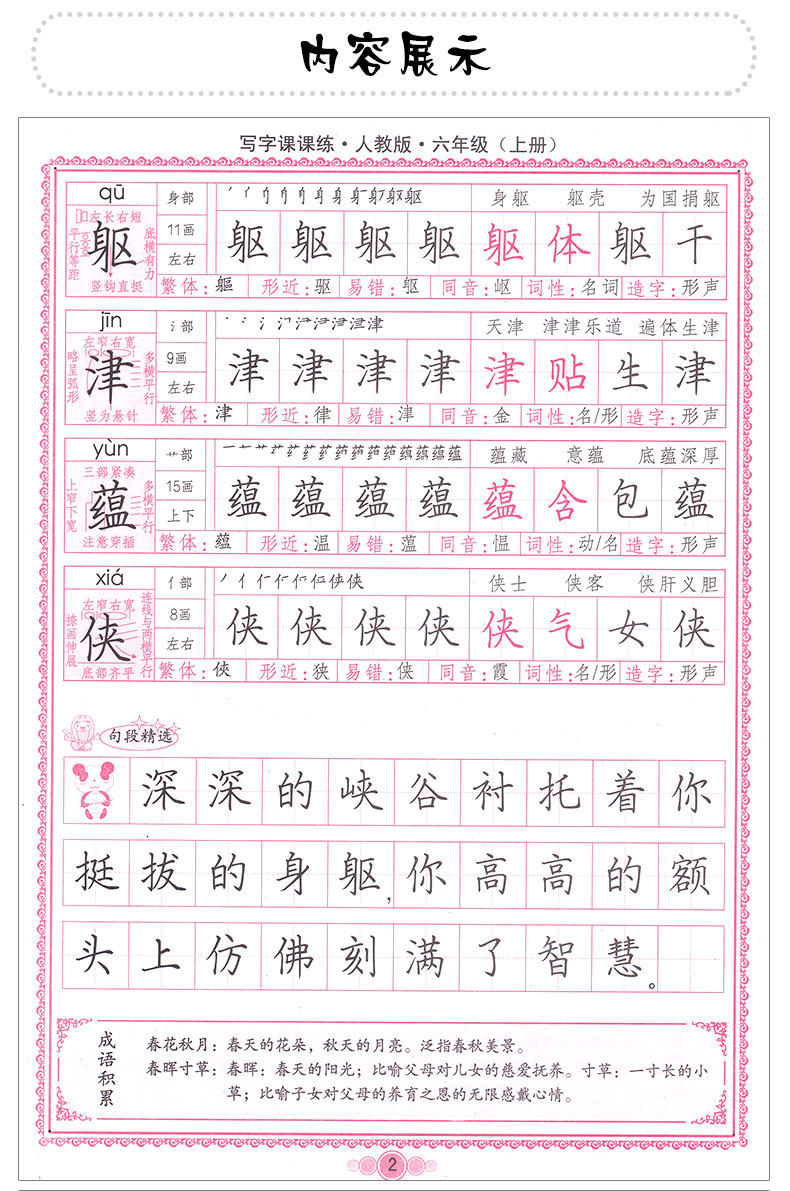 内容展示
写字课课练·人教版·六年级（上册）
qū 身部 身躯 躯壳 为国捐躯
左长右短
平行等距
底横有力
竖钩直挺
躯 11画 左右 躯 躯 躯 躯 躯 体 躯 干
繁体：軀 形近：驱 易错：躯 同音：岖 词性：名词 造字：形声
jīn 氵部 天津 津津乐道 遍体生津
左窄右宽
略呈弧形
多横平行
竖为悬针
津 9画 左右 津 津 津 津 津 贴 生 津
繁体：津 形近：律 易错：津 同音：金 词性：名/形 造字：形声
yùn 艹部 蕴藏 意蕴 底蕴深厚
三部紧凑
上窄下宽
多横平行
注意穿插
蕴 15画 上下 蕴 蕴 蕴 蕴 蕴 含 包 蕴
繁体：蕴 形近：温 易错：薀 同音：愠 词性：动/名 造字：形声
xiá 亻部 侠士 侠客 侠肝义胆
左窄右宽
捺画伸展
连线与两横平行
底部齐平
侠 8画 左右 侠 侠 侠 侠 侠 气 女 侠
繁体：俠 形近：狭 易错：侠 同音：霞 词性：名/形 造字：形声
句段精选
深深的峡谷衬托着你
挺拔的身躯，你高高的额
头上仿佛刻满了智慧。
成语积累
春花秋月：春天的花朵，秋天的月亮。泛指春秋美景。
春晖寸草：春晖：春天的阳光；比喻父母对儿女的慈爱抚养。寸草：一寸长的小
草；比喻子女对父母的养育之恩的无限感戴心情。
2